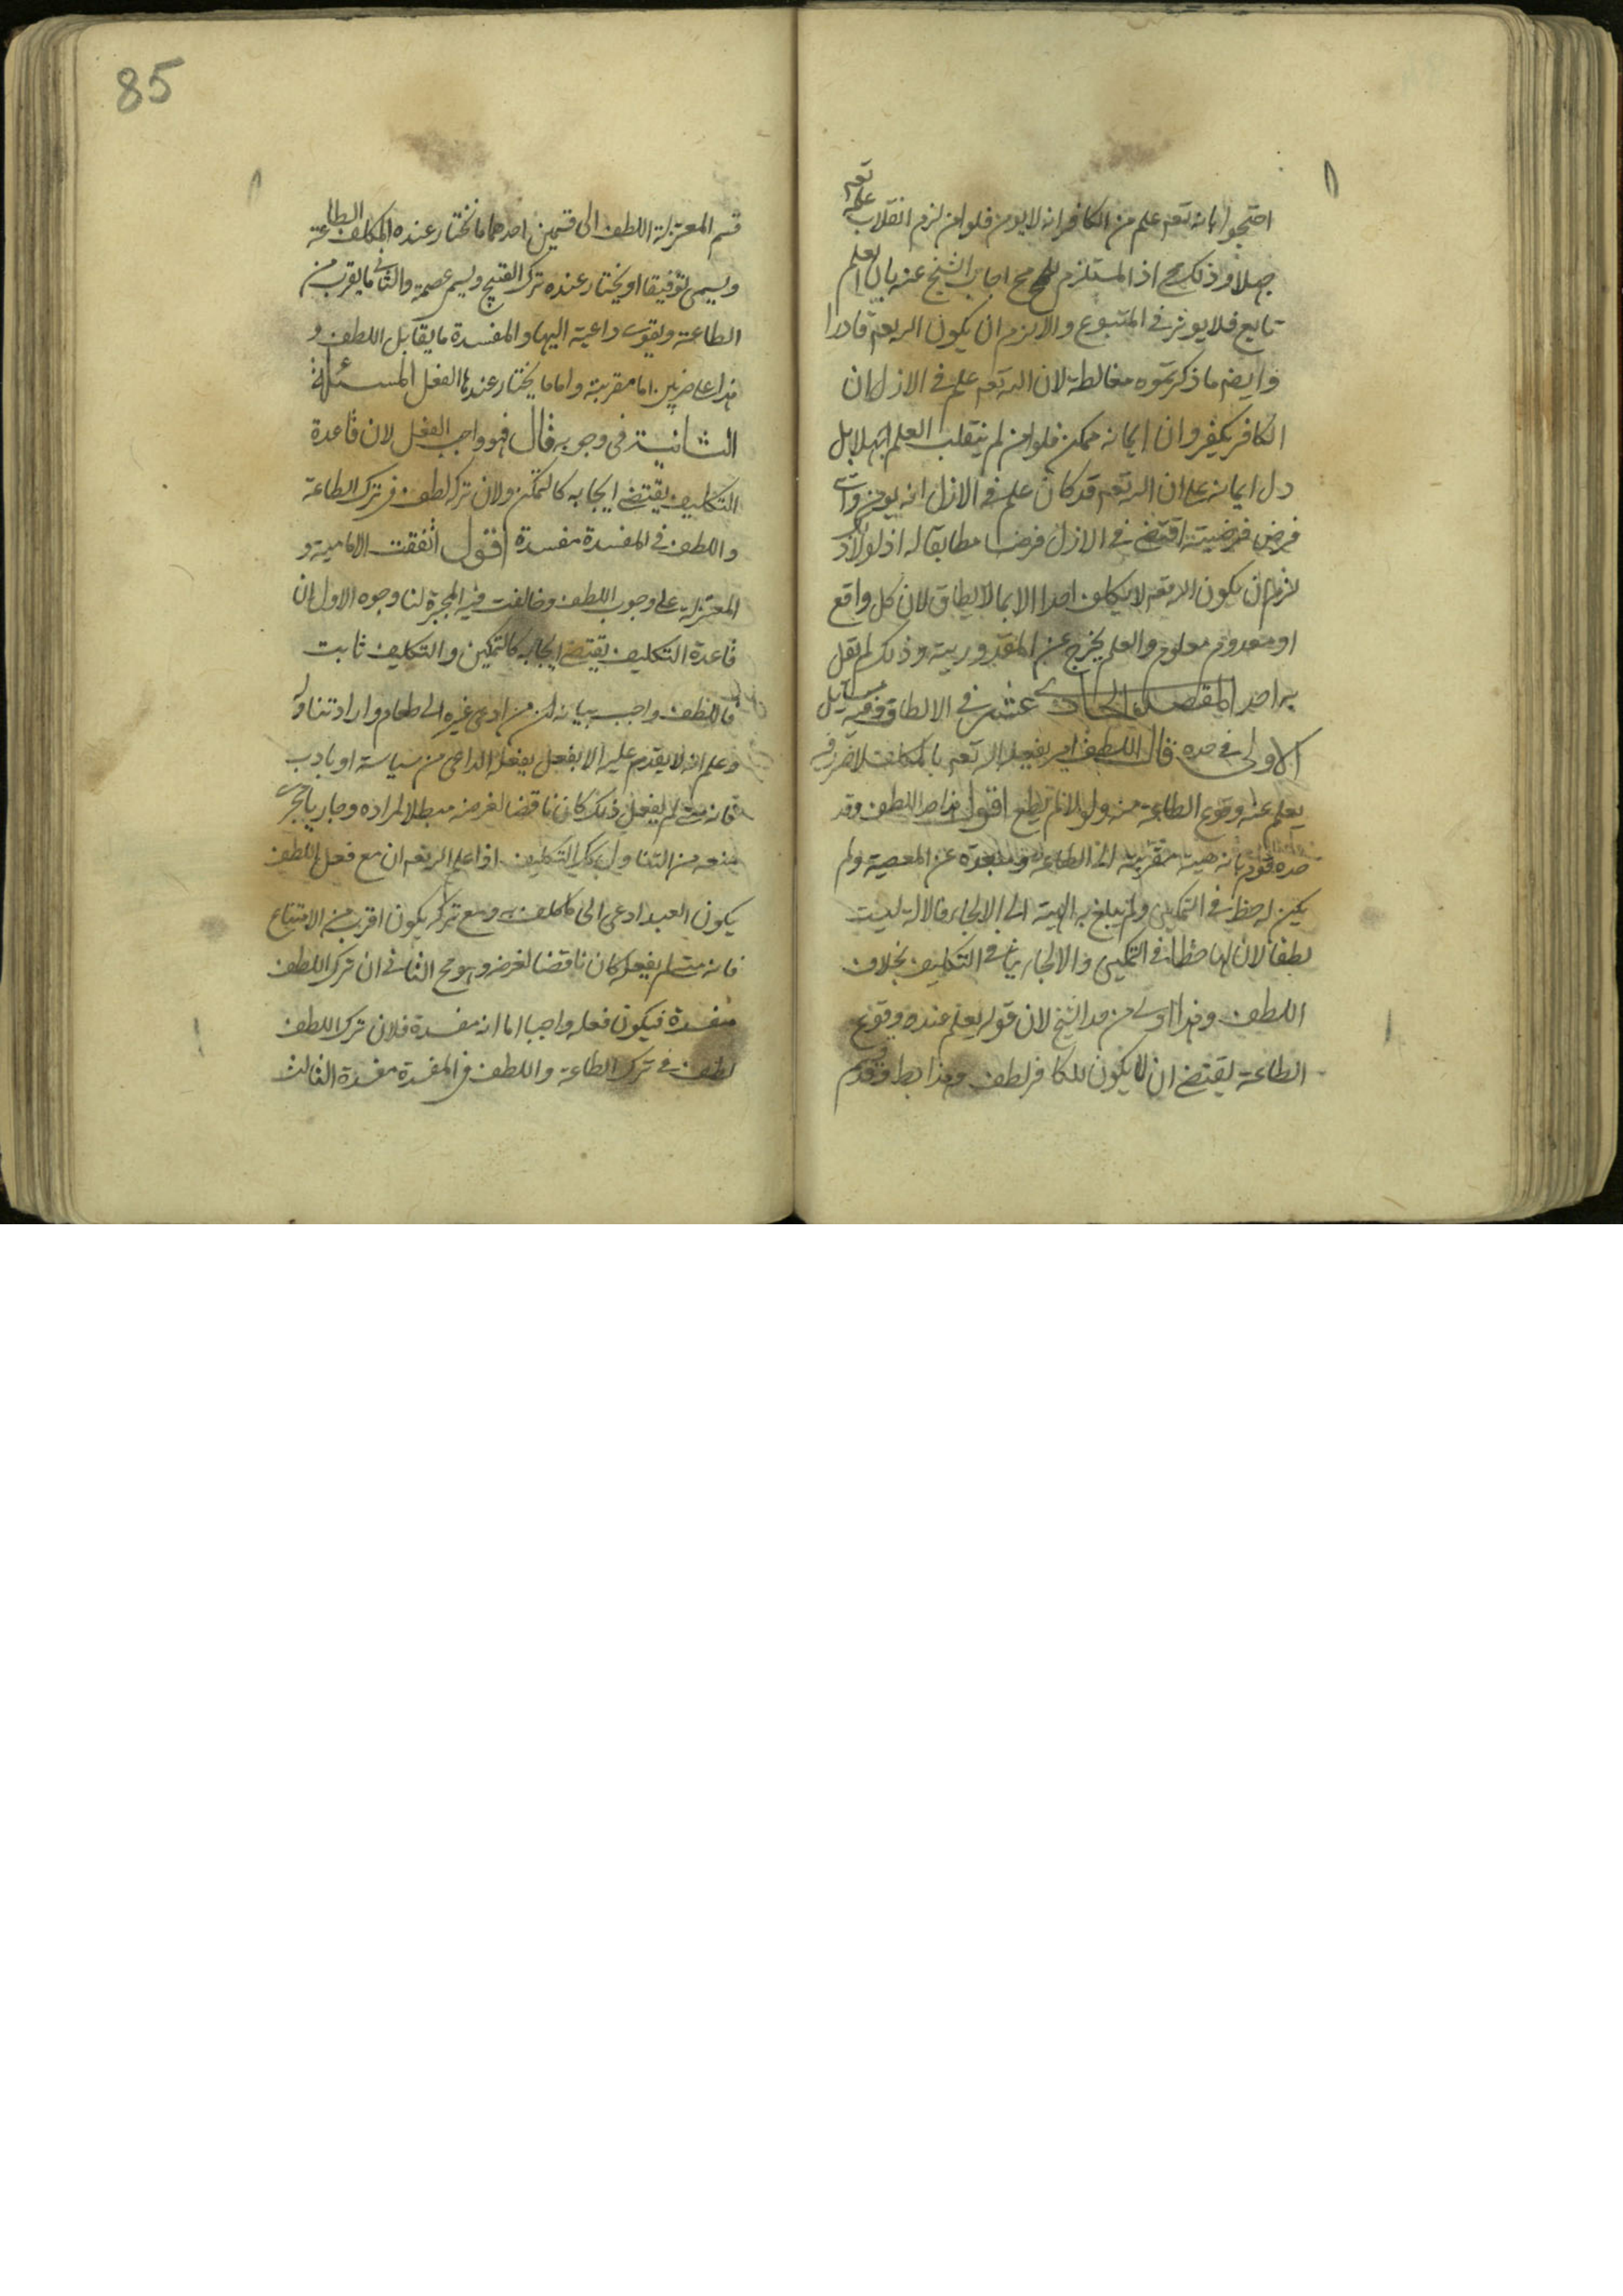 احتجوا بانه تعه علم من الكافر انه لا يومن فلو امن لزم انقلاب علمه تعه
جهلا و ذلك مح اذ المستلزم للمح مح اجاب الشيخ عنه بان العلم
تابع فلا يوثر فى المتبوع و الا لزم ان يكون الله تعه قادرا
و ايضا ما ذكرتموه مغالطة لان الله تعه علم فى الازل ان
الكافر يكفر و ان ايمانه ممكن فلو امن لم ينقلب العلم جهلا بل
دل ايمانه على ان الله تعه قد كان علم فى الازل انه يومن و اى
فرض فرضيته اقتضى فى الازل فرضا مطابقا له اذ لولا ذلك
لزم ان يكون الله تعه لا يكلف احدا الا بما لا يطاق لان كل واقع
او معدوم معلوم و العلم يخرج عن المقدورية و ذلك لم يقل
به احد المقصد الحادى عشر فى الالطاف و فيه مسايل
الاولى فى حده قال اللطف امر يفعله الله تعه بالمكلف لا ضرر فيه
يعلم عنه وقوع الطاعة منه و لولاه لم يطع اقول هذا حد اللطف و قد
حده قوم بانه هيئة مقربة الى الطاعة و مبعدة عن المعصية و لم
يكن له حظ فى التمكين و لم يبلغ به الهيئة الى الالجاء فالالة ليست
لطفا لان لها حظا فى التمكين و الالجاء ينافى التكليف بخلاف
اللطف و هذا اولى من حد الشيخ لان قوله يعلم عنده وقوع
الطاعة يقتضى ان لا يكون للكافر لطف و هذا بط و قدم
85
قسم المعتزلة اللطف الى قسمين احدهما ما يختار عنده المكلف الطاعة
و يسمى توفيقا او يختار عنده ترك القبيح و يسمى عصمة و الثانى ما يقرب من
الطاعة و يقوى داعية اليها و المفسدة ما يقابل اللطف و
هذا على ضربين اما مقربة و اما ما يختار عندها الفعل المسئلة
الثانية فى وجوبه قال فهو واجب الفعل لان قاعدة
التكليف يقتضى ايجابه كالتمكن و لان تركه لطف فى ترك الطاعة
و اللطف فى المفسدة مفسدة اقول اتفقت الامامية و
المعتزلة على وجوب اللطف و خالفت فيه المجبرة لنا وجوه الاول ان
قاعدة التكليف يقتضى ايجابه كالتمكين و التكليف ثابت
فاللطف واجب بيانه ان من ادعى غيره الى طعام و اراد تناوله
و علم انه لا يقدم عليه الا بفعل يفعله الداعى من سياسة او يادب
فانه متى لم يفعل ذلك كان ناقضا لغرضه مبطلا لمراده و جاريا مجرى
منعه من التناول كذلك التكليف اذا علم الله تعه ان مع فعل اللطف
يكون العبد ادعى الى ما كلف به و مع تركه يكون اقرب من الامتناع
فانه متى لم يفعله كان ناقضا لغرضه و هو مح الثانى ان ترك اللطف
مفسدة فيكون فعله واجبا اما انه مفسدة فلان ترك اللطف
لطف فى ترك الطاعة و اللطف فى المفسدة مفسدة الثالث